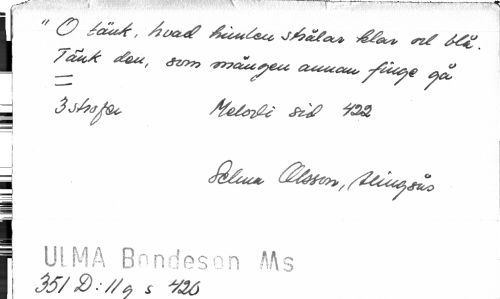 " O tänk, hvad himlen strålar klar och blå.
Tänk den, som mången annan finge gå
3 strofer Melodi sid 422
Selma Olsson, Alingsås
ULMA Bondeson Ms
351 D:11 g s 420